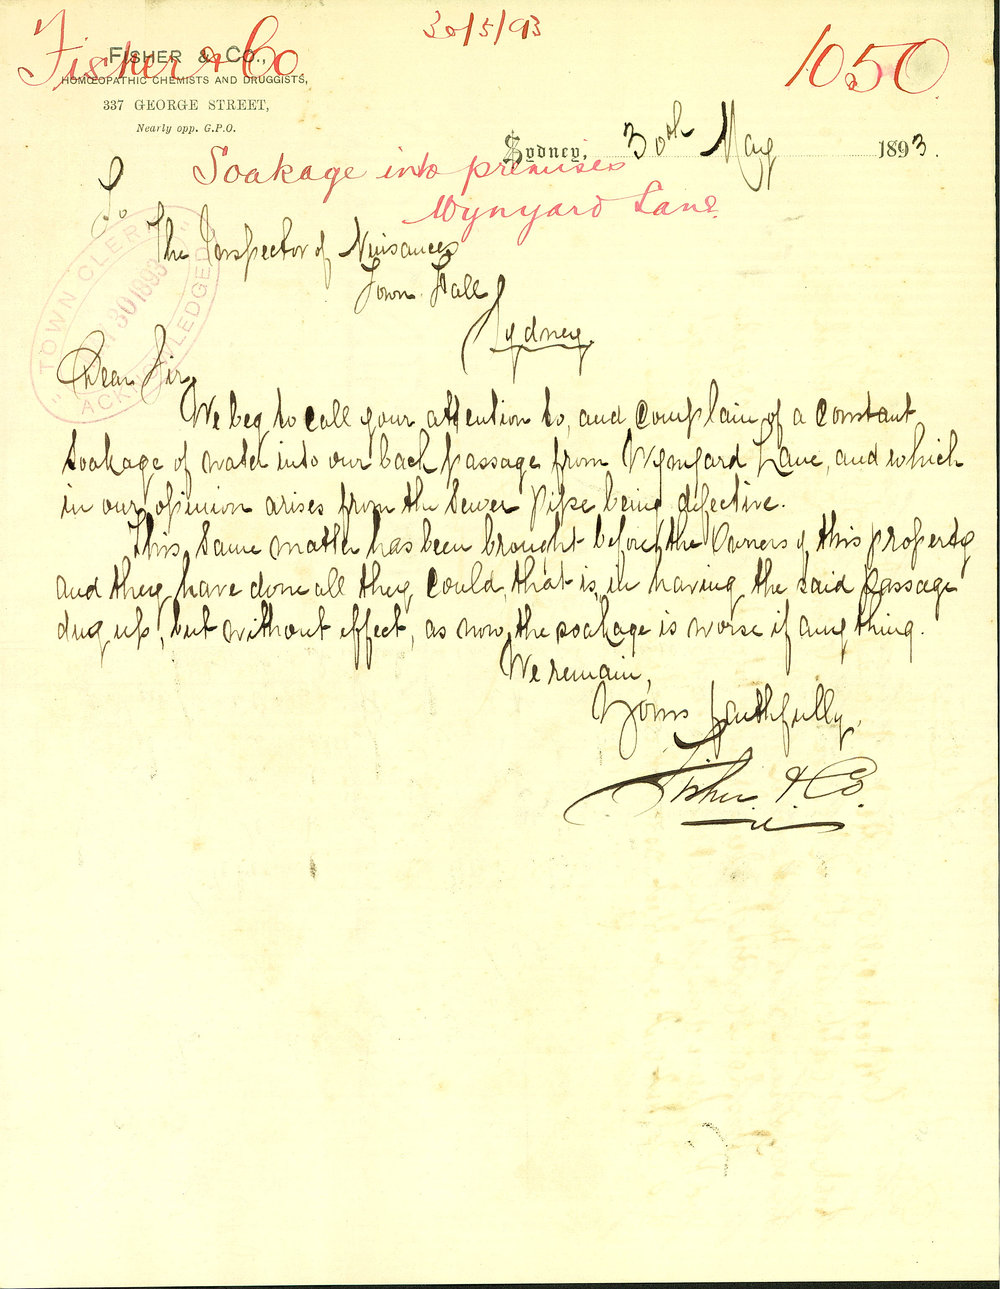 30/5/93
Fisher & Co
1050
FISHER & CO.,
HOMŒOPATHIC CHEMISTS AND DRUGGISTS,
337 GEORGE STREET,
Nearly opp. G.P.O.
Sydney, 30th May 1893.
Soakage into premises
Wynyard Lane.
To
The Inspector of Nuisances
Town Hall
Sydney.
"TOWN CLERK"
30 1893
ACKNOWLEDGED
Dear Sir,
We beg to call your attention to, and complain of a constant
soakage of water into our back passage from Wynyard Lane, and which
in our opinion arises from the Sewer Pipe being defective.
This same matter has been brought before the Owners of this property
and they have done all they could, that is, in having the said passage
dug up, but without effect, as now, the soakage is worse if anything.
We remain,
Yours faithfully,
Fisher & Co.